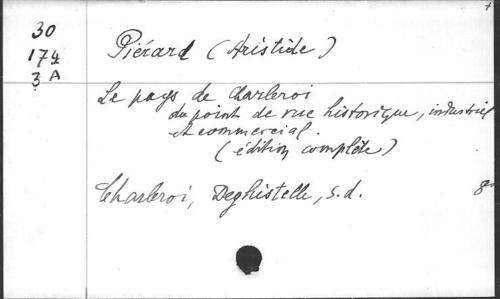 30
174
3 A
Piérard (Aristide)
Le pays de Charleroi
du point de vue historique, industriel
et commercial.
(édition complète)
Charleroi, Deghistelle, s.d.
8º